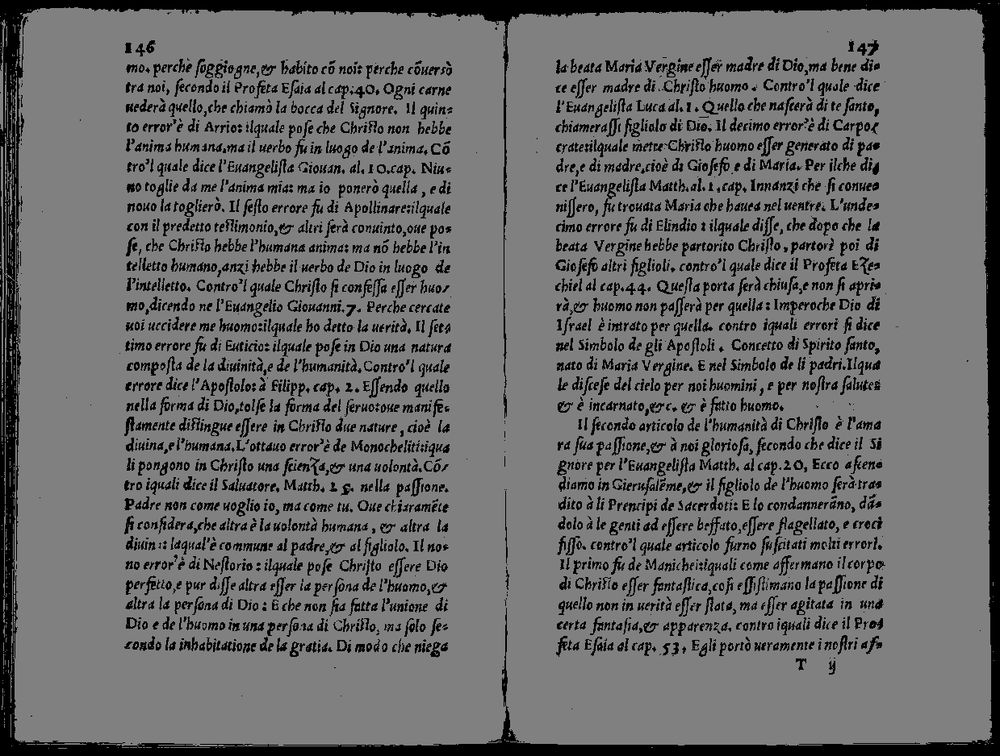 146
mo. perche soggiogne,& habito cō noi: perche cōuersò
tra noi, secondo il Profeta Esaia al cap.40. Ogni carne
uederà quello, che chiamò la bocca del Signore. Il quin-
to error'è di Arrio: ilquale pose che Christo non hebbe
l'anima humana.ma il uerbo fu in luogo de l'anima. Cō
tro'l quale dice l'Euangelista Giouan. al. 10.cap. Niu-
no toglie da me l'anima mia: ma io ponerò quella, e di
nouo la toglierò. Il sesto errore fu di Apollinare:ilquale
con il predetto testimonio,& altri serà conuinto,oue po-
se, che Christo hebbe l'humana anima: ma nō hebbe l'in
telletto humano,anzi hebbe il uerbo de Dio in luogo de
l'intelletto. Contro'l quale Christo si confessa esser huo-
mo,dicendo ne l'Euangelio Giouanni.7. Perche cercate
uoi uccidere me huomo:ilquale ho detto la uerità. Il set-
timo errore fu di Euticio: ilquale pose in Dio una natura
composta de la diuinità,e de l'humanità.Contro'l quale
errore dice l'Apostolo: à Filipp. cap. 2. Essendo quello
nella forma di Dio,tolse la forma del seruo:oue manife-
stamente distingue essere in Christo due nature, cioè la
diuina,e l'humana.L'ottauo error'è de Monocheliti:qua
li pongono in Christo una scienza,& una uolontà.Cō-
tro iquali dice il Saluatore. Matth. 25. nella passione.
Padre non come uoglio io, ma come tu. Oue chiaramēte
si confidera,che altra è la uolontà humana, & altra la
diuin:: laqual'è commune al padre,& al figliolo. Il no-
no error'è di Nestorio: ilquale pose Christo essere Dio
perfetto,e pur disse altra esser la persona de l'huomo,&
altra la persona di Dio: E che non sia fatta l'unione di
Dio e de l'huomo in una persona di Christo, ma solo se-
condo la inhabitatione de la gratia. Di modo che niega
147
la beata Maria Vergine esser madre di Dio,ma bene di-
ce esser madre di Christo huomo. Contro'l quale dice
l'Euangelista Luca al.1. Quello che nascerà di te santo,
chiamerassi figliolo di Dio. Il decimo error'è di Carpo-
crate:ilquale mette Christo huomo esser generato di pa-
dre,e di madre,cioè di Giosefo e di Maria. Per ilche di-
ce l'Euangelista Matth.al.1.cap. Innanzi che si conue-
nissero, fu trouata Maria che hauea nel uentre. L'unde-
cimo errore fu di Elindio: ilquale disse, che dopo che la
beata Vergine hebbe partorito Christo, partorì poi di
Giosefo altri figlioli. contro'l quale dice il Profeta Eze-
chiel al cap.44. Questa porta serà chiusa,e non si apri-
rà,& huomo non passerà per quella: Imperoche Dio di
Israel è intrato per quella. contro iquali errori si dice
nel Simbolo de gli Apostoli. Concetto di Spirito santo,
nato di Maria Vergine. E nel Simbolo de li padri.Ilqua
le discese del cielo per noi huomini, e per nostra salute:
& è incarnato,&c. & è fatto huomo.
Il secondo articolo de l'humanità di Christo è l'ama
ra sua passione,& à noi gloriosa, secondo che dice il Si
gnore per l'Euangelista Matth. al cap.20. Ecco ascen-
diamo in Gierusalēme,& il figliolo de l'huomo serà tra-
dito à li Prencipi de Sacerdoti: E lo condanneranno, dā-
dolo à le genti ad essere beffato,essere flagellato, e croci
fisso. contro'l quale articolo furno suscitati molti errori.
Il primo fu de Manichei:quali come affermano il corpo
di Christo esser fantastico,cosi essistimano la passione di
quello non in uerità esser stata, ma esser agitata in una
certa fantasia,& apparenza. contro iquali dice il Pro-
feta Esaia al cap. 53. Egli portò ueramente i nostri af-
T ij